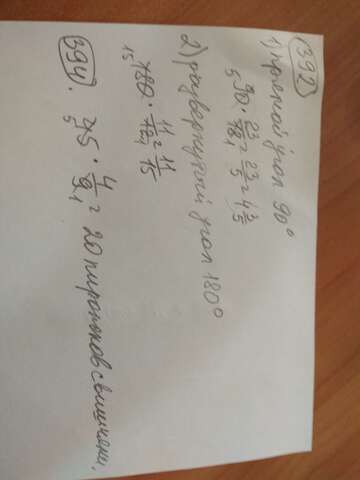 392
1) прямой угол 90°
5 90 · 23/18 1 = 23/5 = 4 3/5
2) развернутый угол 180°
15 180 · 11/12 1 = 11/15
394. 5 45 · 4/9 1 = 20 пирожков с вишнями.